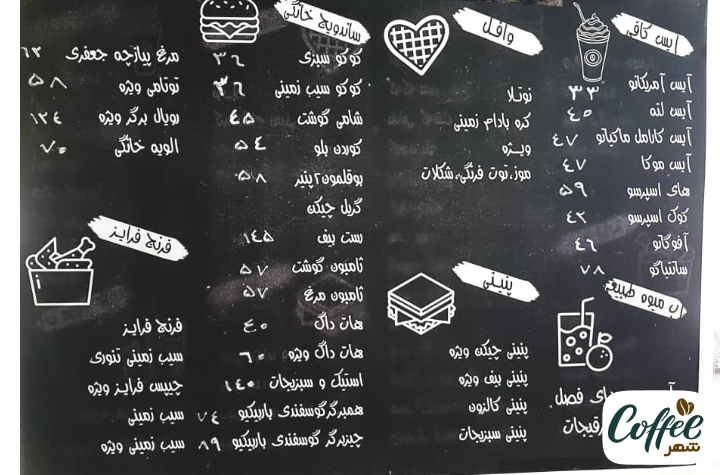 آیس کافی
آیس آمریکانو ۳۳
آیس لته ۴۵
آیس کارامل ماکیاتو ۴۷
آیس موکا ۴۷
های اسپرسو ۵۹
کوک اسپرسو ۴۲
آفوگاتو ۴۶
سانتیاگو ۷۸
آب میوه طبیعی
های فصل
وافل
نوتلا
کره بادام زمینی
ویژه
موز، توت فرنگی، شکلات
پنینی
پنینی چیکن ویژه
پنینی بیف ویژه
پنینی کالزون
پنینی سبزیجات
ساندویچ خانگی
کوکو سبزی ۳۶
کوکو سیب زمینی ۳۶
شامی گوشت ۴۵
کوردن بلو ۵۴
بوقلمون پنیر ۵۸
گریل چیکن
رست بیف ۱۴۵
ژامبون گوشت ۵۷
ژامبون مرغ ۵۷
هات داگ ۴۰
هات داگ ویژه ۶۰
استیک و سبزیجات ۱۴۰
همبرگر گوسفندی باربیکیو ۷۴
چیزبرگر گوسفندی باربیکیو ۸۹
مرغ پیازچه جعفری ۶۳
توتامی ویژه ۵۸
رویال برگر ویژه ۱۲۴
الویه خانگی ۷۰
فرنچ فرایز
فرنچ فرایز
سیب زمینی تنوری
چیپس فرایز ویژه
سیب زمینی
سیب زمینی ویژه
Coffee
شهر